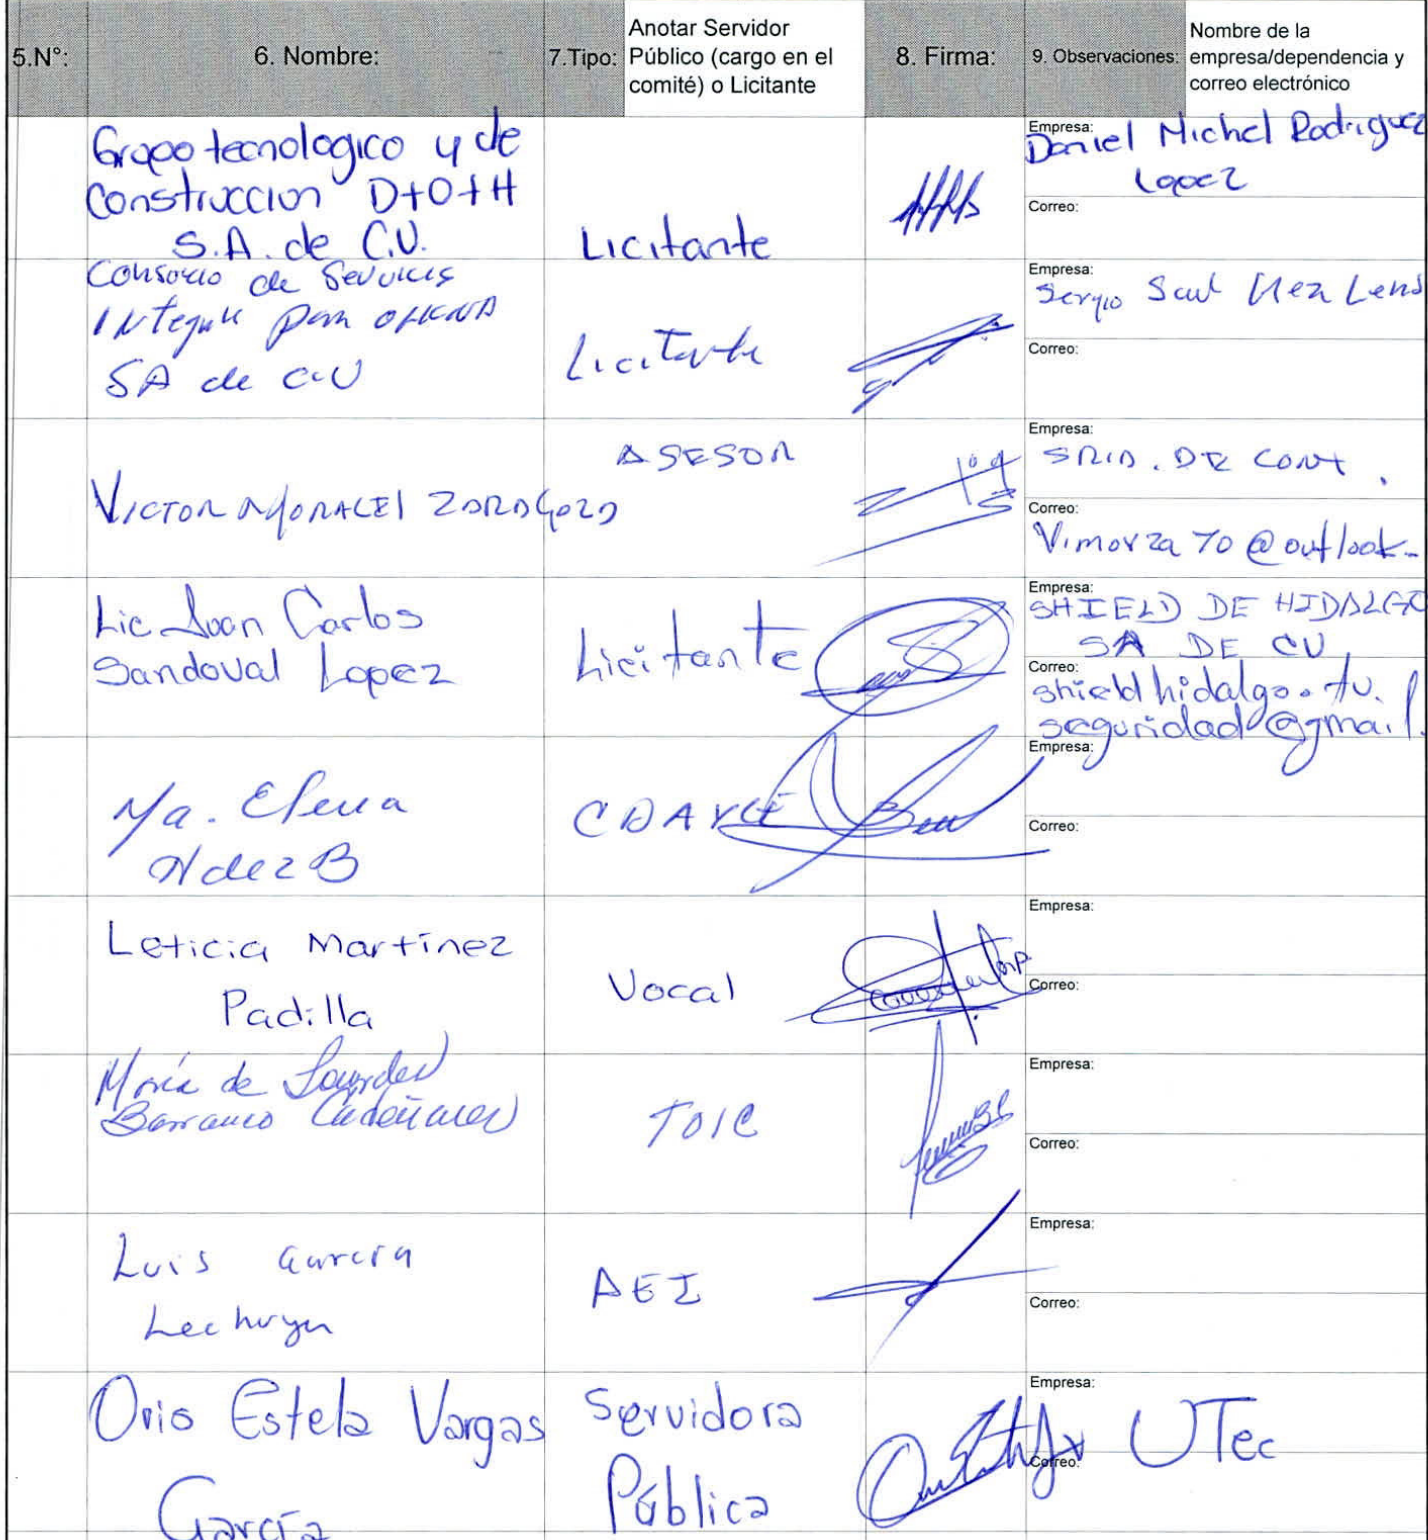 5.N°:
6. Nombre:
7.Tipo:
Anotar Servidor
Público (cargo en el
comité) o Licitante
8. Firma:
9. Observaciones:
Nombre de la
empresa/dependencia y
correo electrónico
Grupo tecnologico y de
Construccion D+O+H
S.A. de C.V.
Licitante
Empresa:
Daniel Michel Rodriguez
Lopez
Correo:
Consorcio de Servicios
Integral para oficina
SA de C.V
Licitante
Empresa:
Sergio Saul
Correo:
VICTOR MORALES ZARAGOZA
ASESOR
Empresa:
SRIA. DE CONT.
Correo:
Vimorza70@outlook.
Lic Juan Carlos
Sandoval Lopez
Licitante
Empresa:
SHIELD DE HIDALGO
SA DE CV
Correo:
shieldhidalgo.tu.
seguridad@gmail.
Ma. Elena
Hdez B
Empresa:
Correo:
Leticia Martínez
Padilla
Vocal
Empresa:
Correo:
María de Lourdes
Barranco
TOIC
Empresa:
Correo:
Luis Garcia
Lechuga
AEI
Empresa:
Correo:
Oria Estela Vargas
García
Servidora
Pública
Empresa:
UTec
Correo: